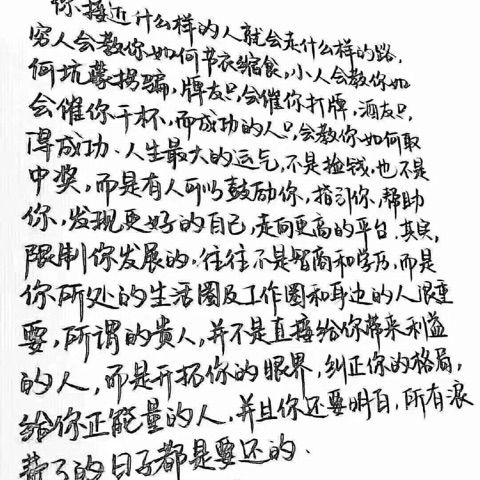 你接近什么样的人就会走什么样的路，
穷人会教你如何节衣缩食，小人会教你如
何坑蒙拐骗，牌友只会催你打牌，酒友只
会催你干杯，而成功的人只会教你如何取
得成功、人生最大的运气，不是捡钱，也不是
中奖，而是有人可以鼓励你，指引你，帮助
你，发现更好的自己，走向更高的平台。其实，
限制你发展的，往往不是智商和学历，而是
你所处的生活圈及工作圈和身边的人很重
要，所谓的贵人，并不是直接给你带来利益
的人，而是开拓你的眼界，纠正你的格局，
给你正能量的人，并且你还要明白，所有浪
费了的日子都是要还的．